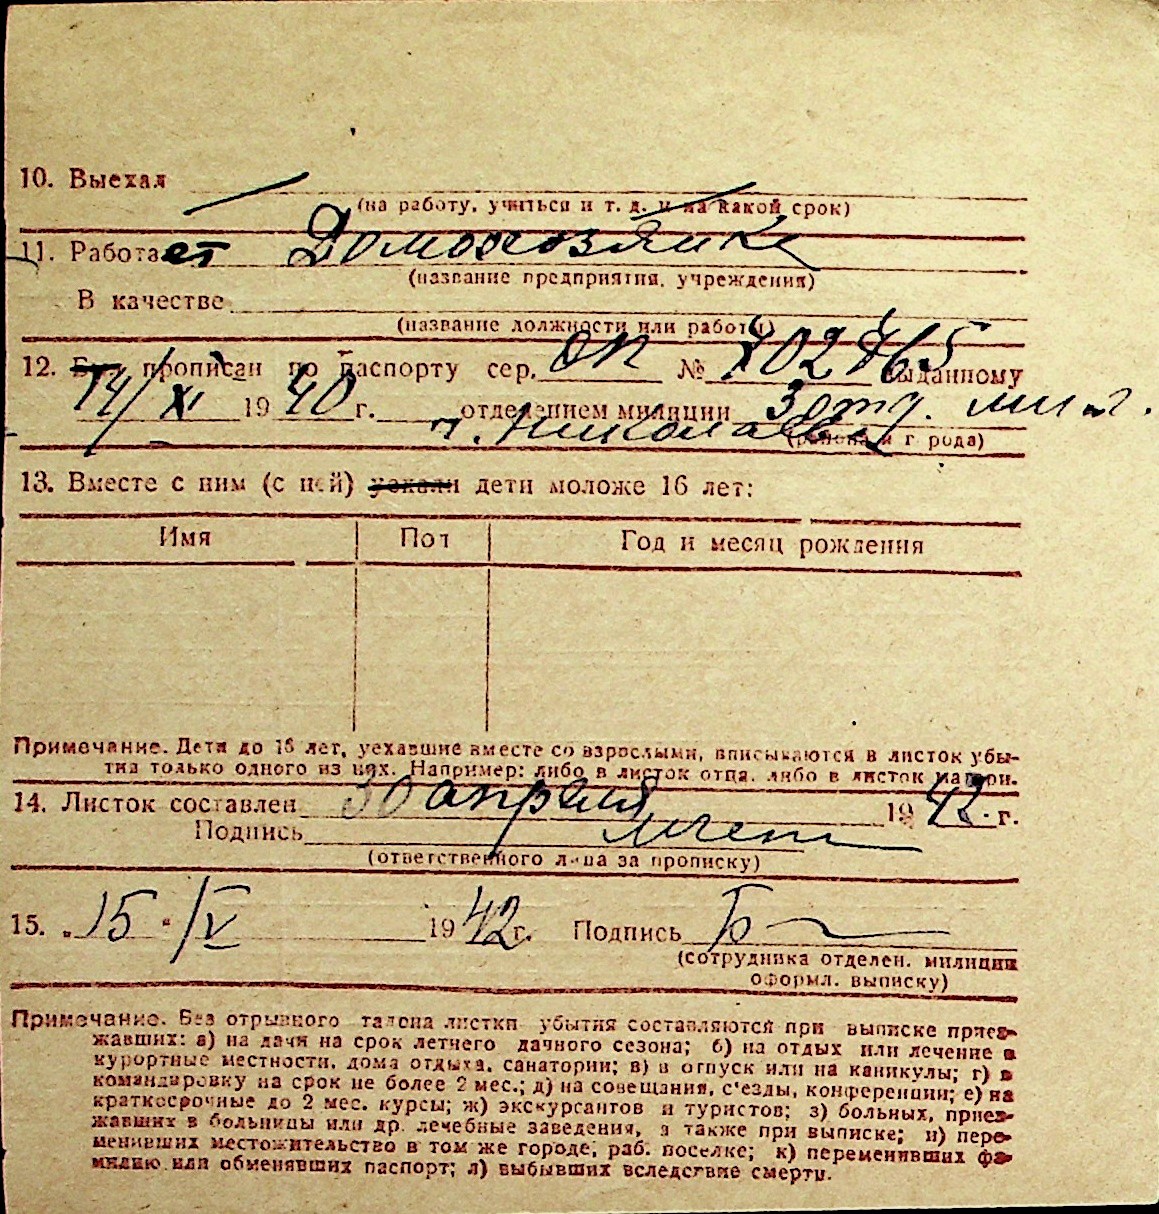 10. Выехал
(на работу, учиться и т. д. и на какой срок)
11. Работает Домохозяйка
(название предприятия, учреждения)
В качестве
(название должности или работы)
12. Был прописан по паспорту сер. ОП № выданному
14/XI 1940 г. отделением милиции 3 отд. мил.
г. Николаев
(района и города)
13. Вместе с ним (с ней) уехали дети моложе 16 лет:
Имя Пол Год и месяц рождения
Примечание. Дети до 16 лет, уехавшие вместе со взрослыми, вписываются в листок убы-
тия только одного из них. Например: либо в листок отца, либо в листок матери.
14. Листок составлен 30 апреля 1942 г.
Подпись
(ответственного лица за прописку)
15. 15 · IV 1942 г. Подпись
(сотрудника отделен. милиции
оформл. выписку)
Примечание. Без отрывного талона листки убытия составляются при выписке приез-
жавших: а) на дачи на срок летнего дачного сезона; б) на отдых или лечение в
курортные местности, дома отдыха, санатории; в) в отпуск или на каникулы; г) в
командировку на срок не более 2 мес.; д) на совещания, с'езды, конференции; е) на
краткосрочные до 2 мес. курсы; ж) экскурсантов и туристов; з) больных, приез-
жавших в больницы или др. лечебные заведения, а также при выписке; и) пере-
менивших местожительство в том же городе, раб. поселке; к) переменивших фа-
милию или обменявших паспорт; л) выбывших вследствие смерти.